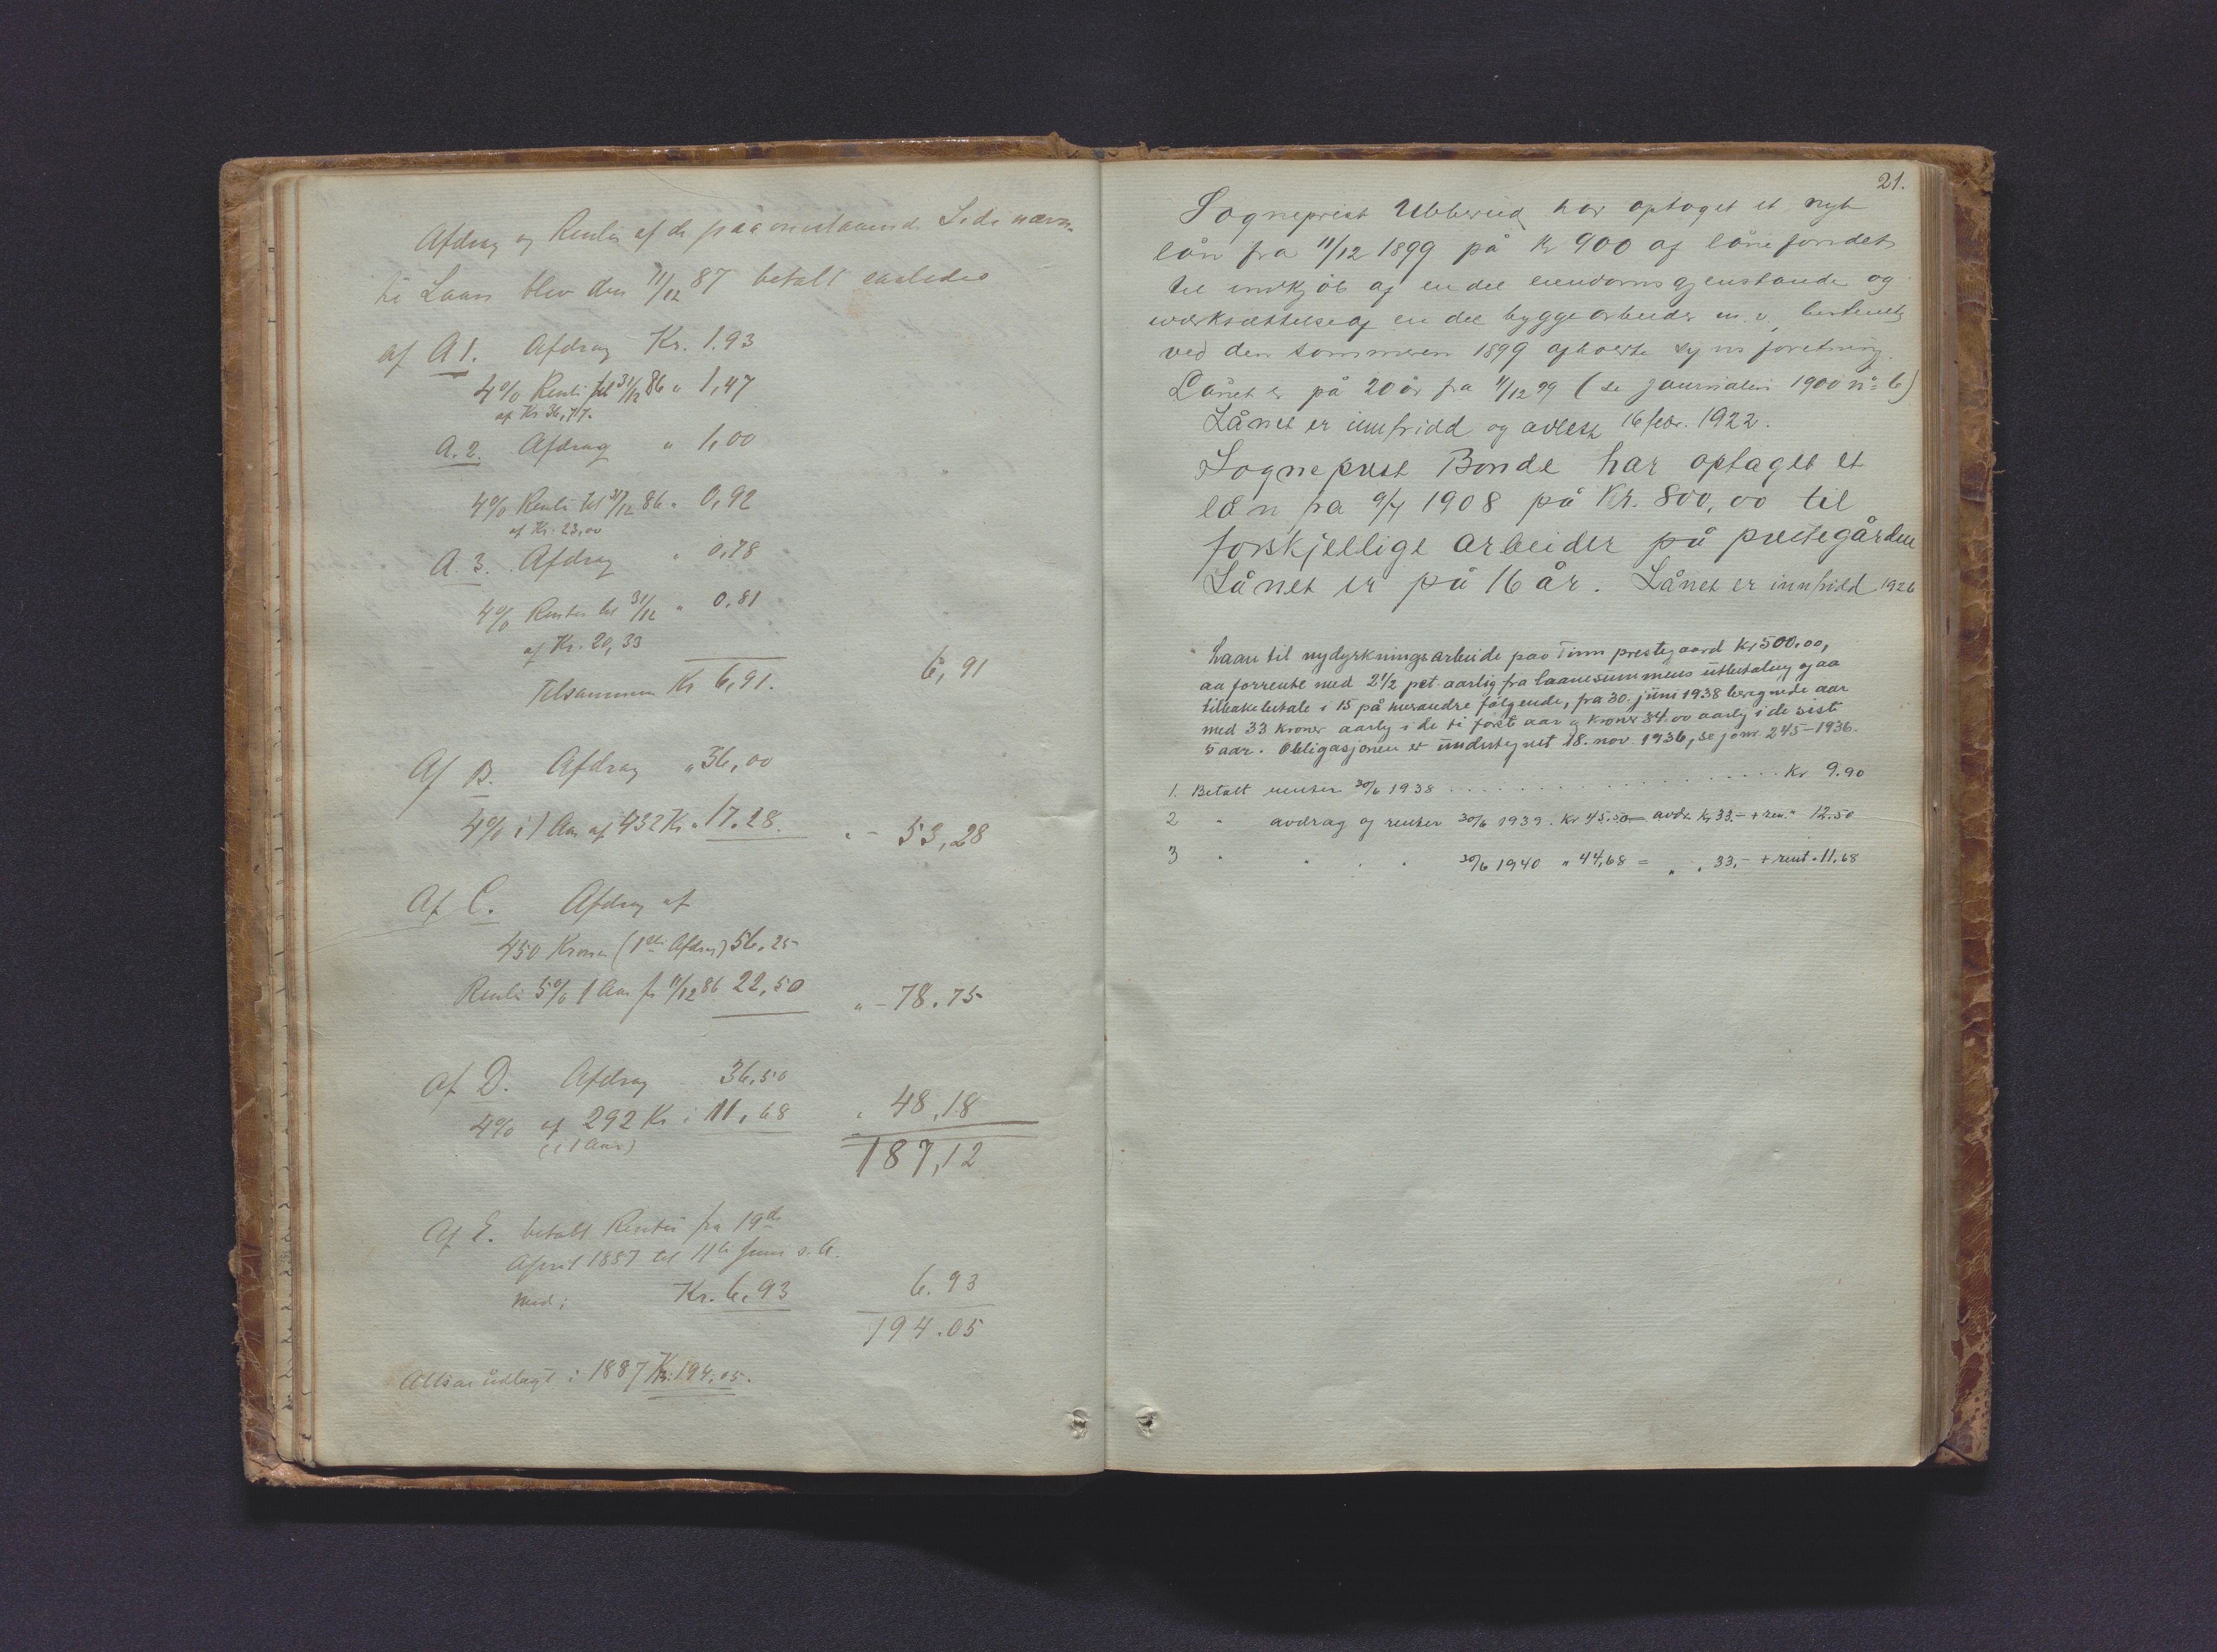 Afdrag og Renter af de paa omstaaende Side nævn-
te Laan blev den 11/12 87 betalt saaledes
af A 1. Afdrag Kr. 1.93
4% Rente til 31/12 86 " 1,47
af Kr 36,77.
A. 2. Afdrag " 1,00
4% Rente til 31/12 86 " 0,92
af Kr. 23,00
A. 3. Afdrag " 0,78
4% Renter til 31/12 " 0,81
af Kr. 20,33
Tilsammen Kr 6,91. 6,91
Af B. Afdrag " 36,00
4% i 1 Aar af 432 Kr. " 17.28. " - 53,28
Af C. Afdrag af
450 Kroner (1ste Afdrag) 56,25
Rente 5% 1 Aar fr 11/12 86 22,50 " - 78.75
Af D. Afdrag 36,50
4% af 292 Kr : 11,68 " 48,18
(i 1 Aar)
187,12
Af E. betalt Renter fra 19de
April 1887 til 11te Juni s. A.
med : Kr. 6,93 6.93
194.05
Altsaa udlagt i 1887 Kr. 194,05.
21.
Sogneprest Ubberud har optaget et nyt
lån fra 11/12 1899 på Kr 900 af lånefondet
til indkjøb af en del eiendomsgjenstande og
iværksættelse af en del byggearbeider m. v. bestemt
ved den sommeren 1899 afholdte synsforetning.
Lånet er på 20 år fra 11/12 99 (se journalen 1900 no 6)
Lånet er innfridd og avlest 16 febr. 1922.
Sogneprest Bonde har optaget et
lån fra 9/7 1908 på Kr. 800,00 til
forskjellige arbeider på prestegården
Lånet er på 16 år. Lånet er innfridd 1926
Laan til nydyrkningsarbeide paa Tinn prestegaard Kr 500.00,
aa forrente med 2 1/2 pct. aarlig fra laanesummens utbetaling og aa
tilbakebetale i 15 på hverandre følgende, fra 30. juni 1938 beregnede aar
med 33 kroner aarlig i de ti først aar og kroner 34.00 aarlig i de sist
5 aar. Obligasjonen er undertegnet 18. nov. 1936, se jonr. 245-1936.
1. Betalt renter 30/6 1938 . . . . . . . . . . . . Kr 9.90
2 " avdrag og renter 30/6 1939. Kr 45.50 = avdr. Kr 33.- + ren. " 12.50
3 " " " " 30/6 1940 " 44,68 = " " 33,- + rent. " 11,68